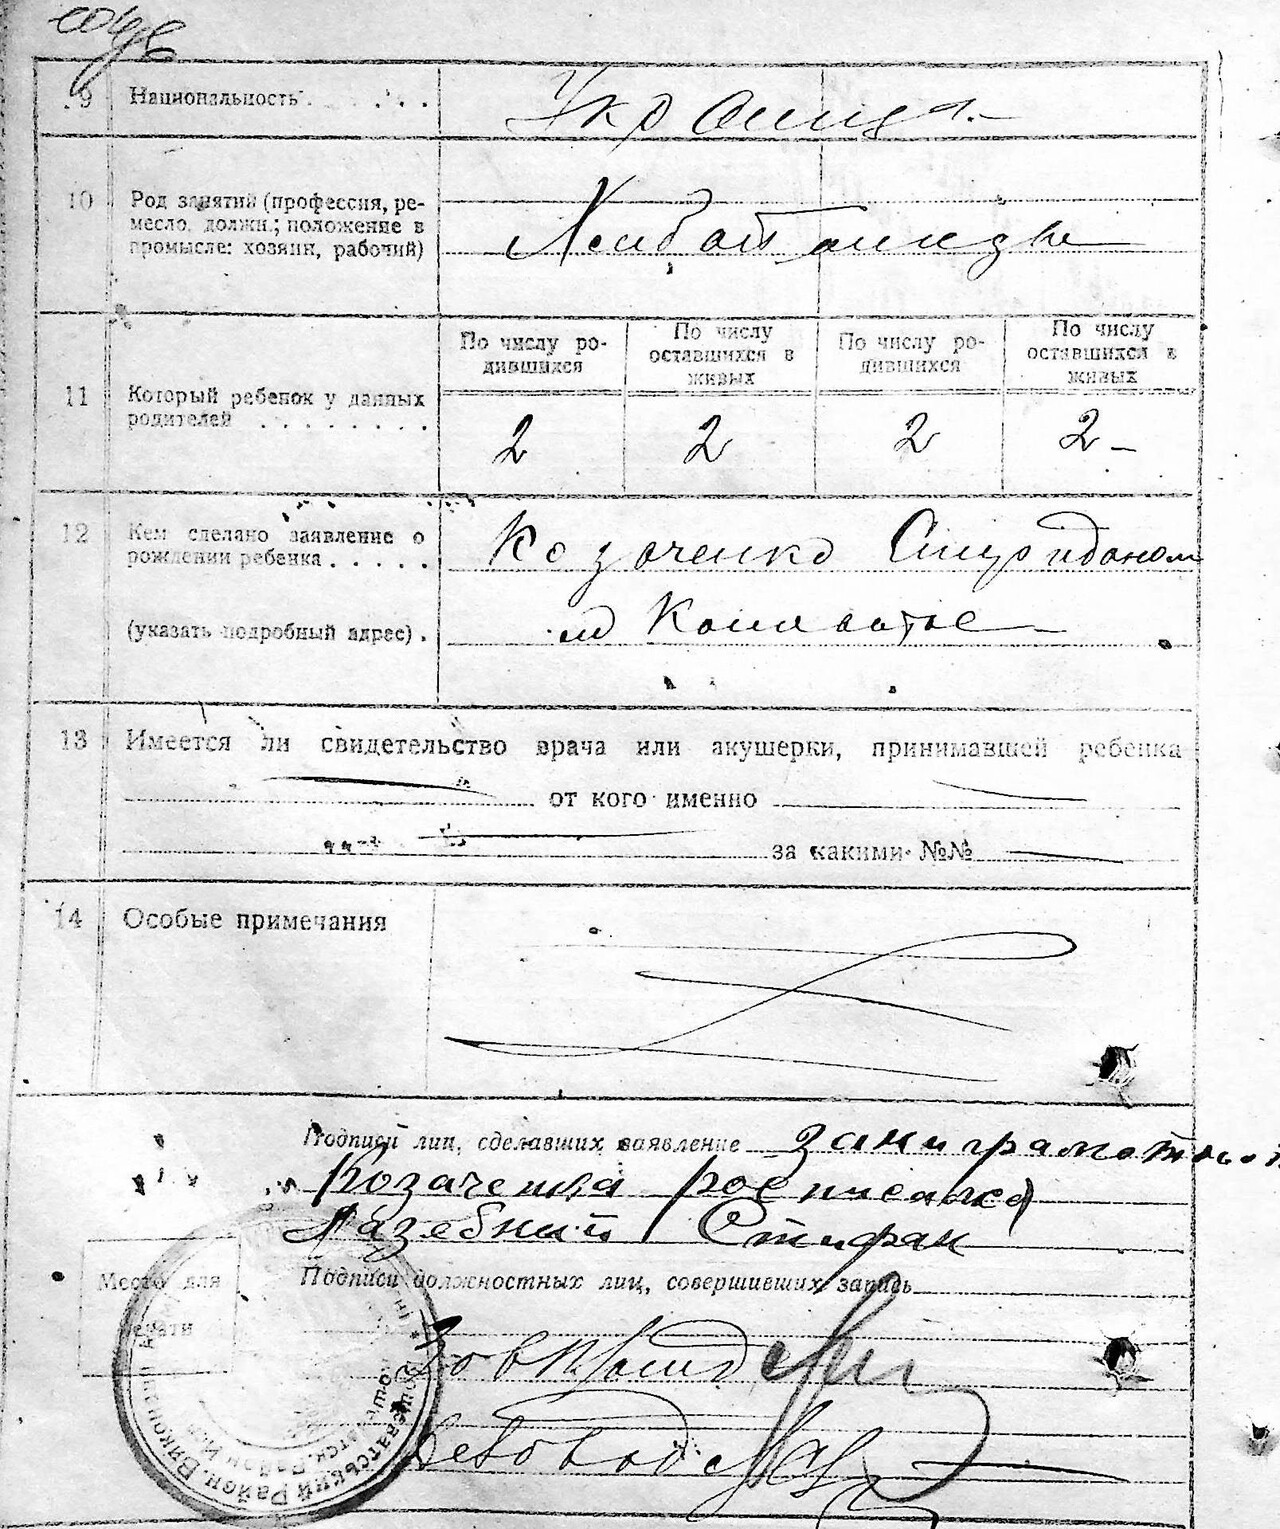 9 Национальность
Украинцы
10 Род занятий (профессия, ре-
месло, должн.; положение в
промысле: хозяин, рабочий)
Хлебопашцы
По числу ро-
дившихся
По числу
оставшихся в
живых
По числу ро-
дившихся
По числу
оставшихся в
живых
11 Который ребенок у данных
родителей
2 2 2 2
12 Кем сделано заявление о
рождении ребенка
Козаченко Спиридоном
(указать подробный адрес).
13 Имеется ли свидетельство врача или акушерки, принимавшей ребенка
от кого именно
за какими №№
14 Особые примечания
Подписи лиц, сделавших заявление
Козаченка росписался
Лазебний Стифан
Подписи должностных лиц, совершивших запись
Место для
печати
Завкрстд
Деловод